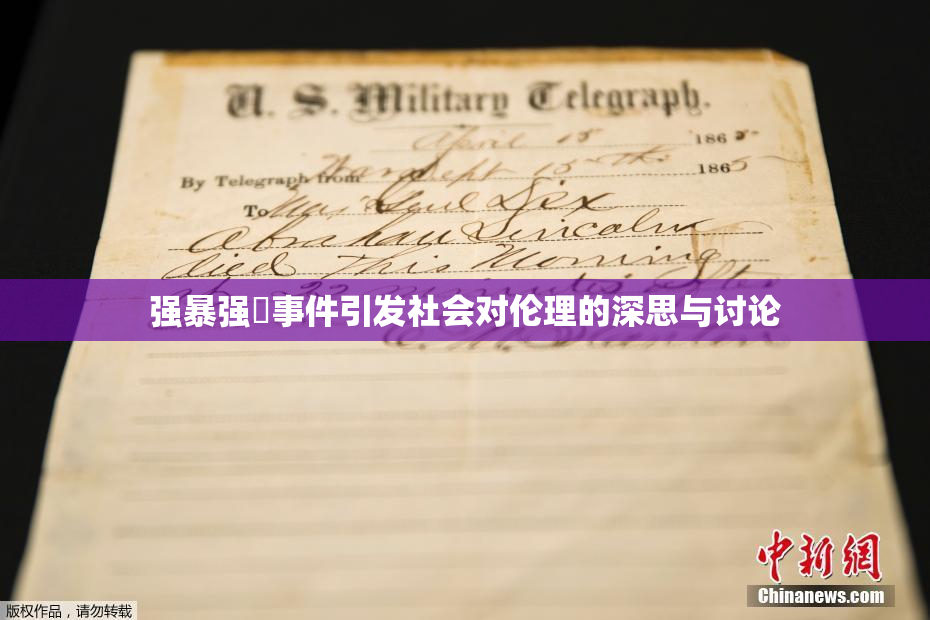 U. S. Military Telegraph.
April 15 1865
By Telegraph from War Dept 15th 1865
To Maj Genl Dix
Abraham Lincoln
died This Morning
at 22 minutes after
强暴强事件引发社会对伦理的深思与讨论
E. M. Stanton
中新网
Chinanews.com
版权作品，请勿转载